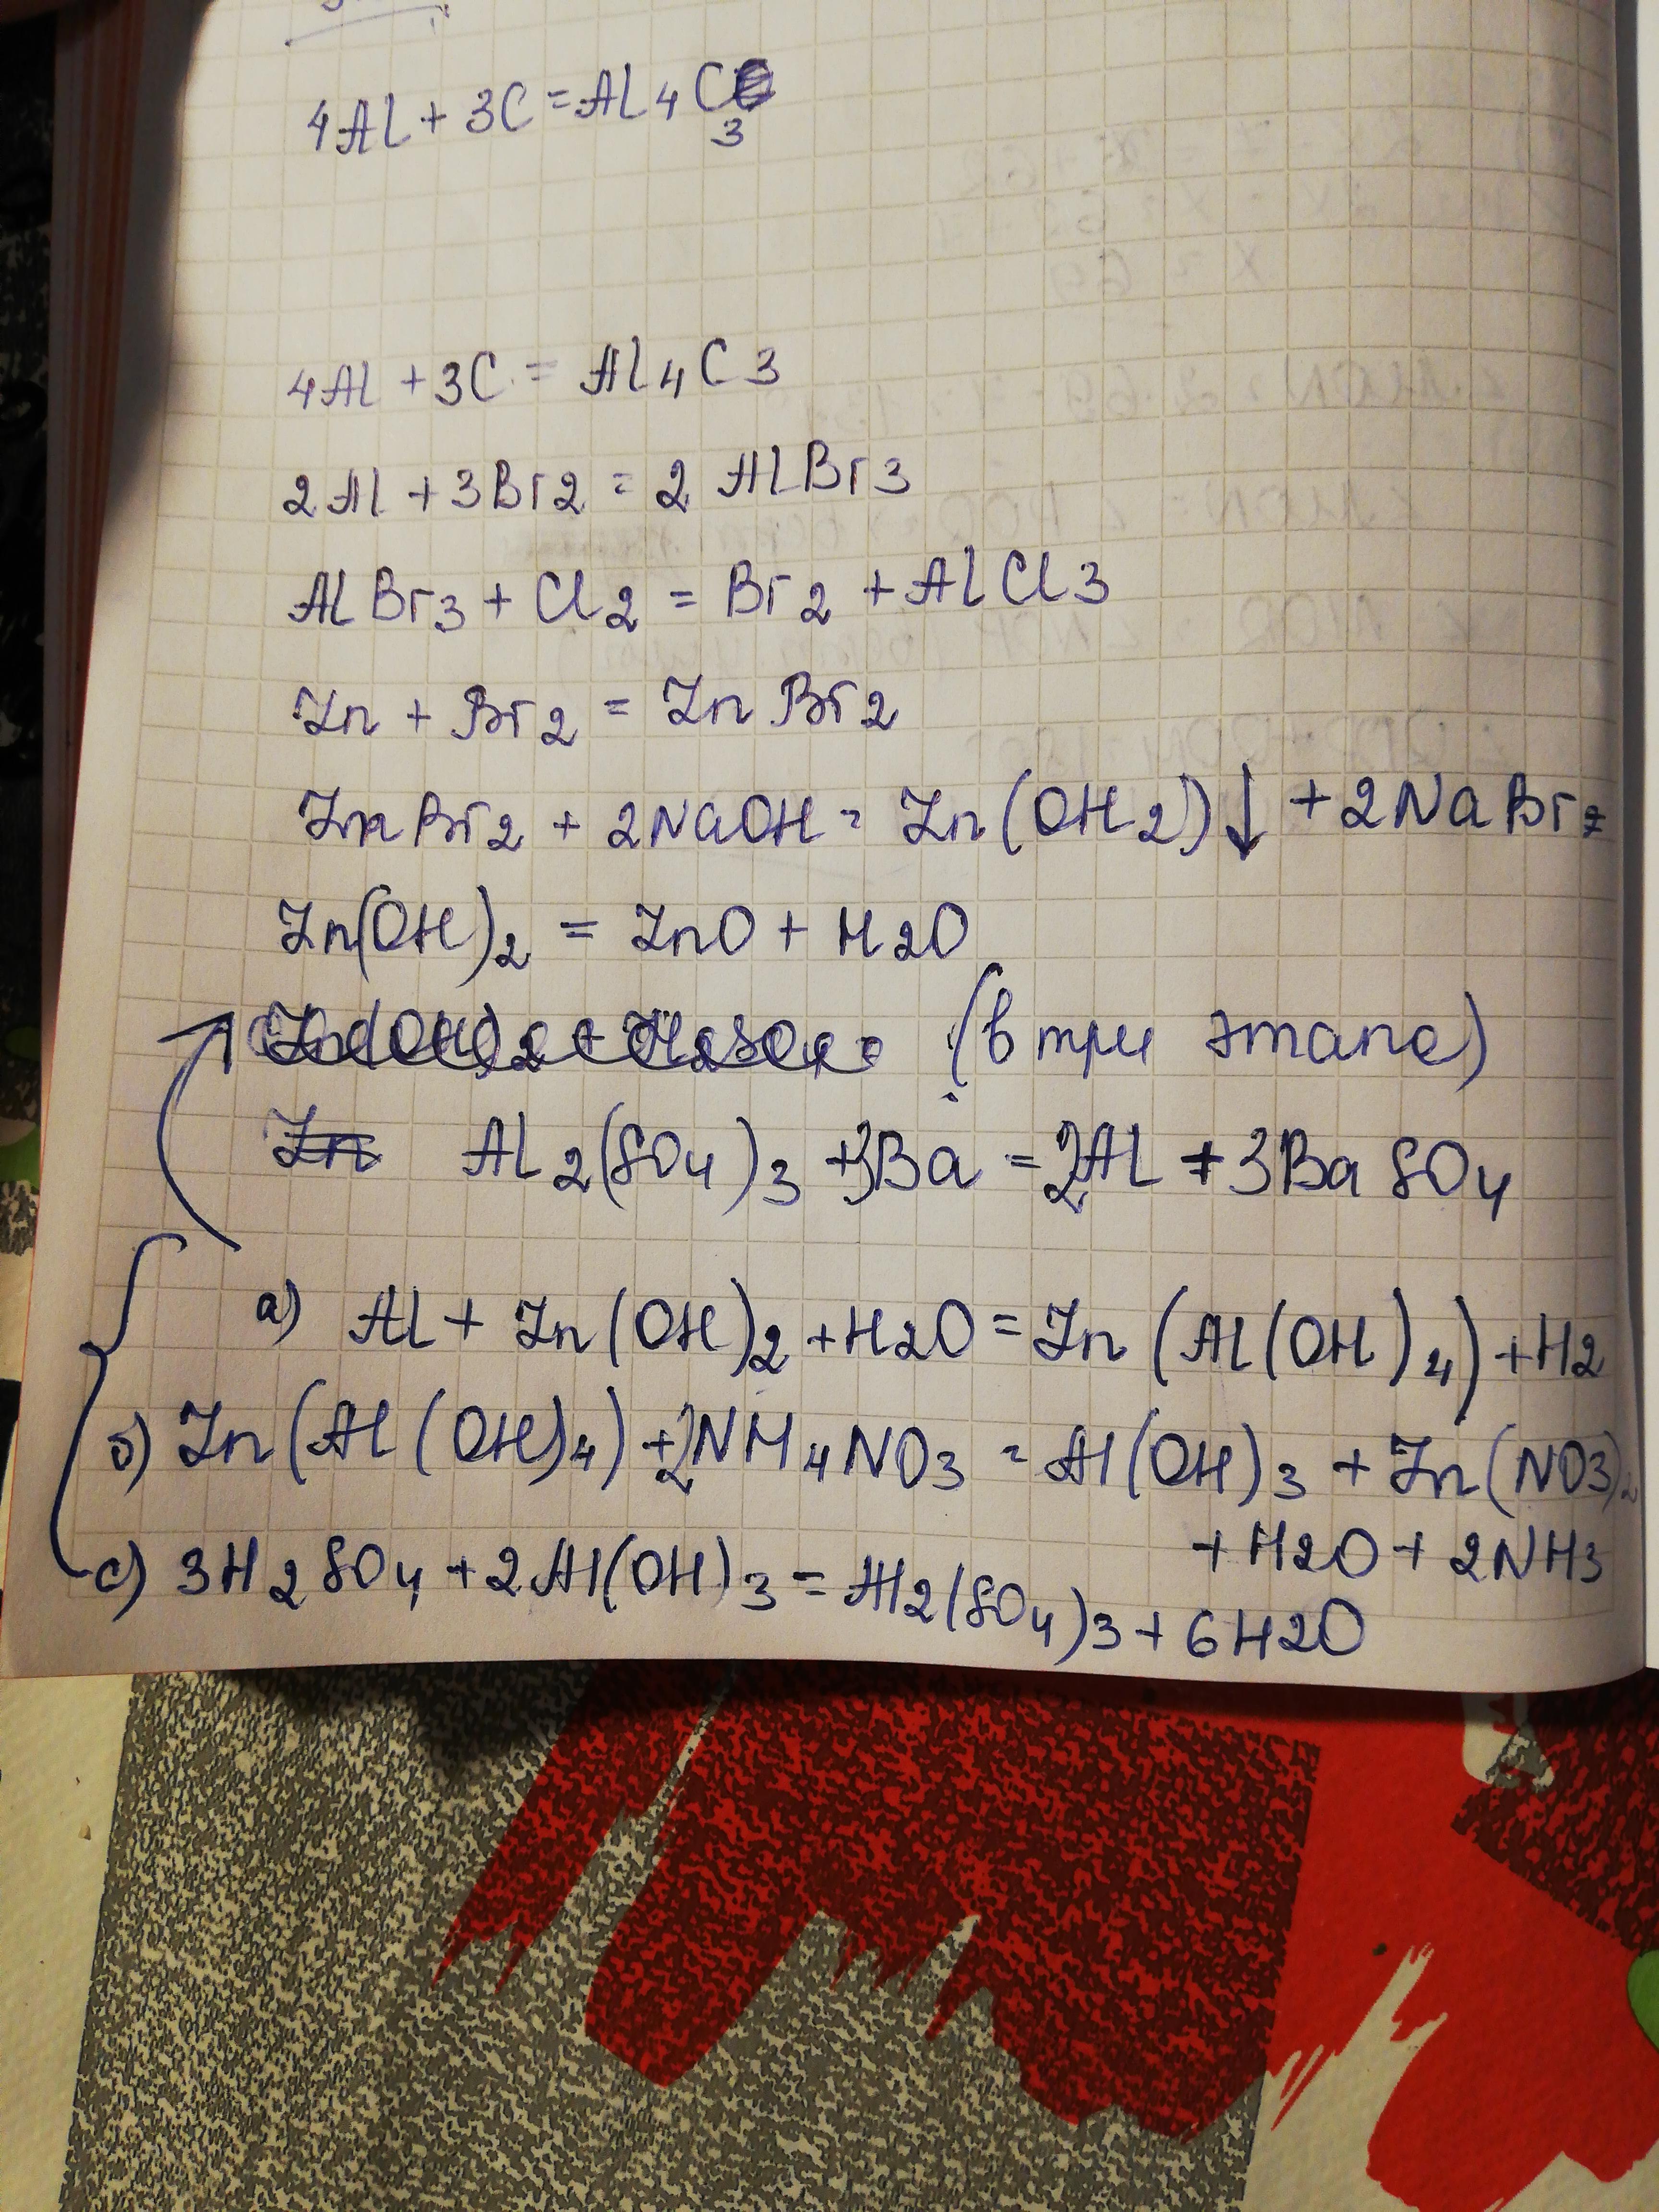 4Al + 3C = Al4C3
4Al + 3C = Al4C3
2Al + 3Br2 = 2 AlBr3
AlBr3 + Cl2 = Br2 + AlCl3
Zn + Br2 = ZnBr2
ZnBr2 + 2NaOH = Zn(OH2)↓ + 2NaBr2
Zn(OH)2 = ZnO + H2O
Zn(OH)2 + H2SO4 = (в три этапа)
Zn Al2(SO4)3 + 3Ba = 2Al + 3BaSO4
а) Al + Zn(OH)2 + H2O = Zn(Al(OH)4) + H2
б) Zn(Al(OH)4) + 2NH4NO3 = Al(OH)3 + Zn(NO3)2
+ H2O + 2NH3
с) 3H2SO4 + 2Al(OH)3 = Al2(SO4)3 + 6H2O